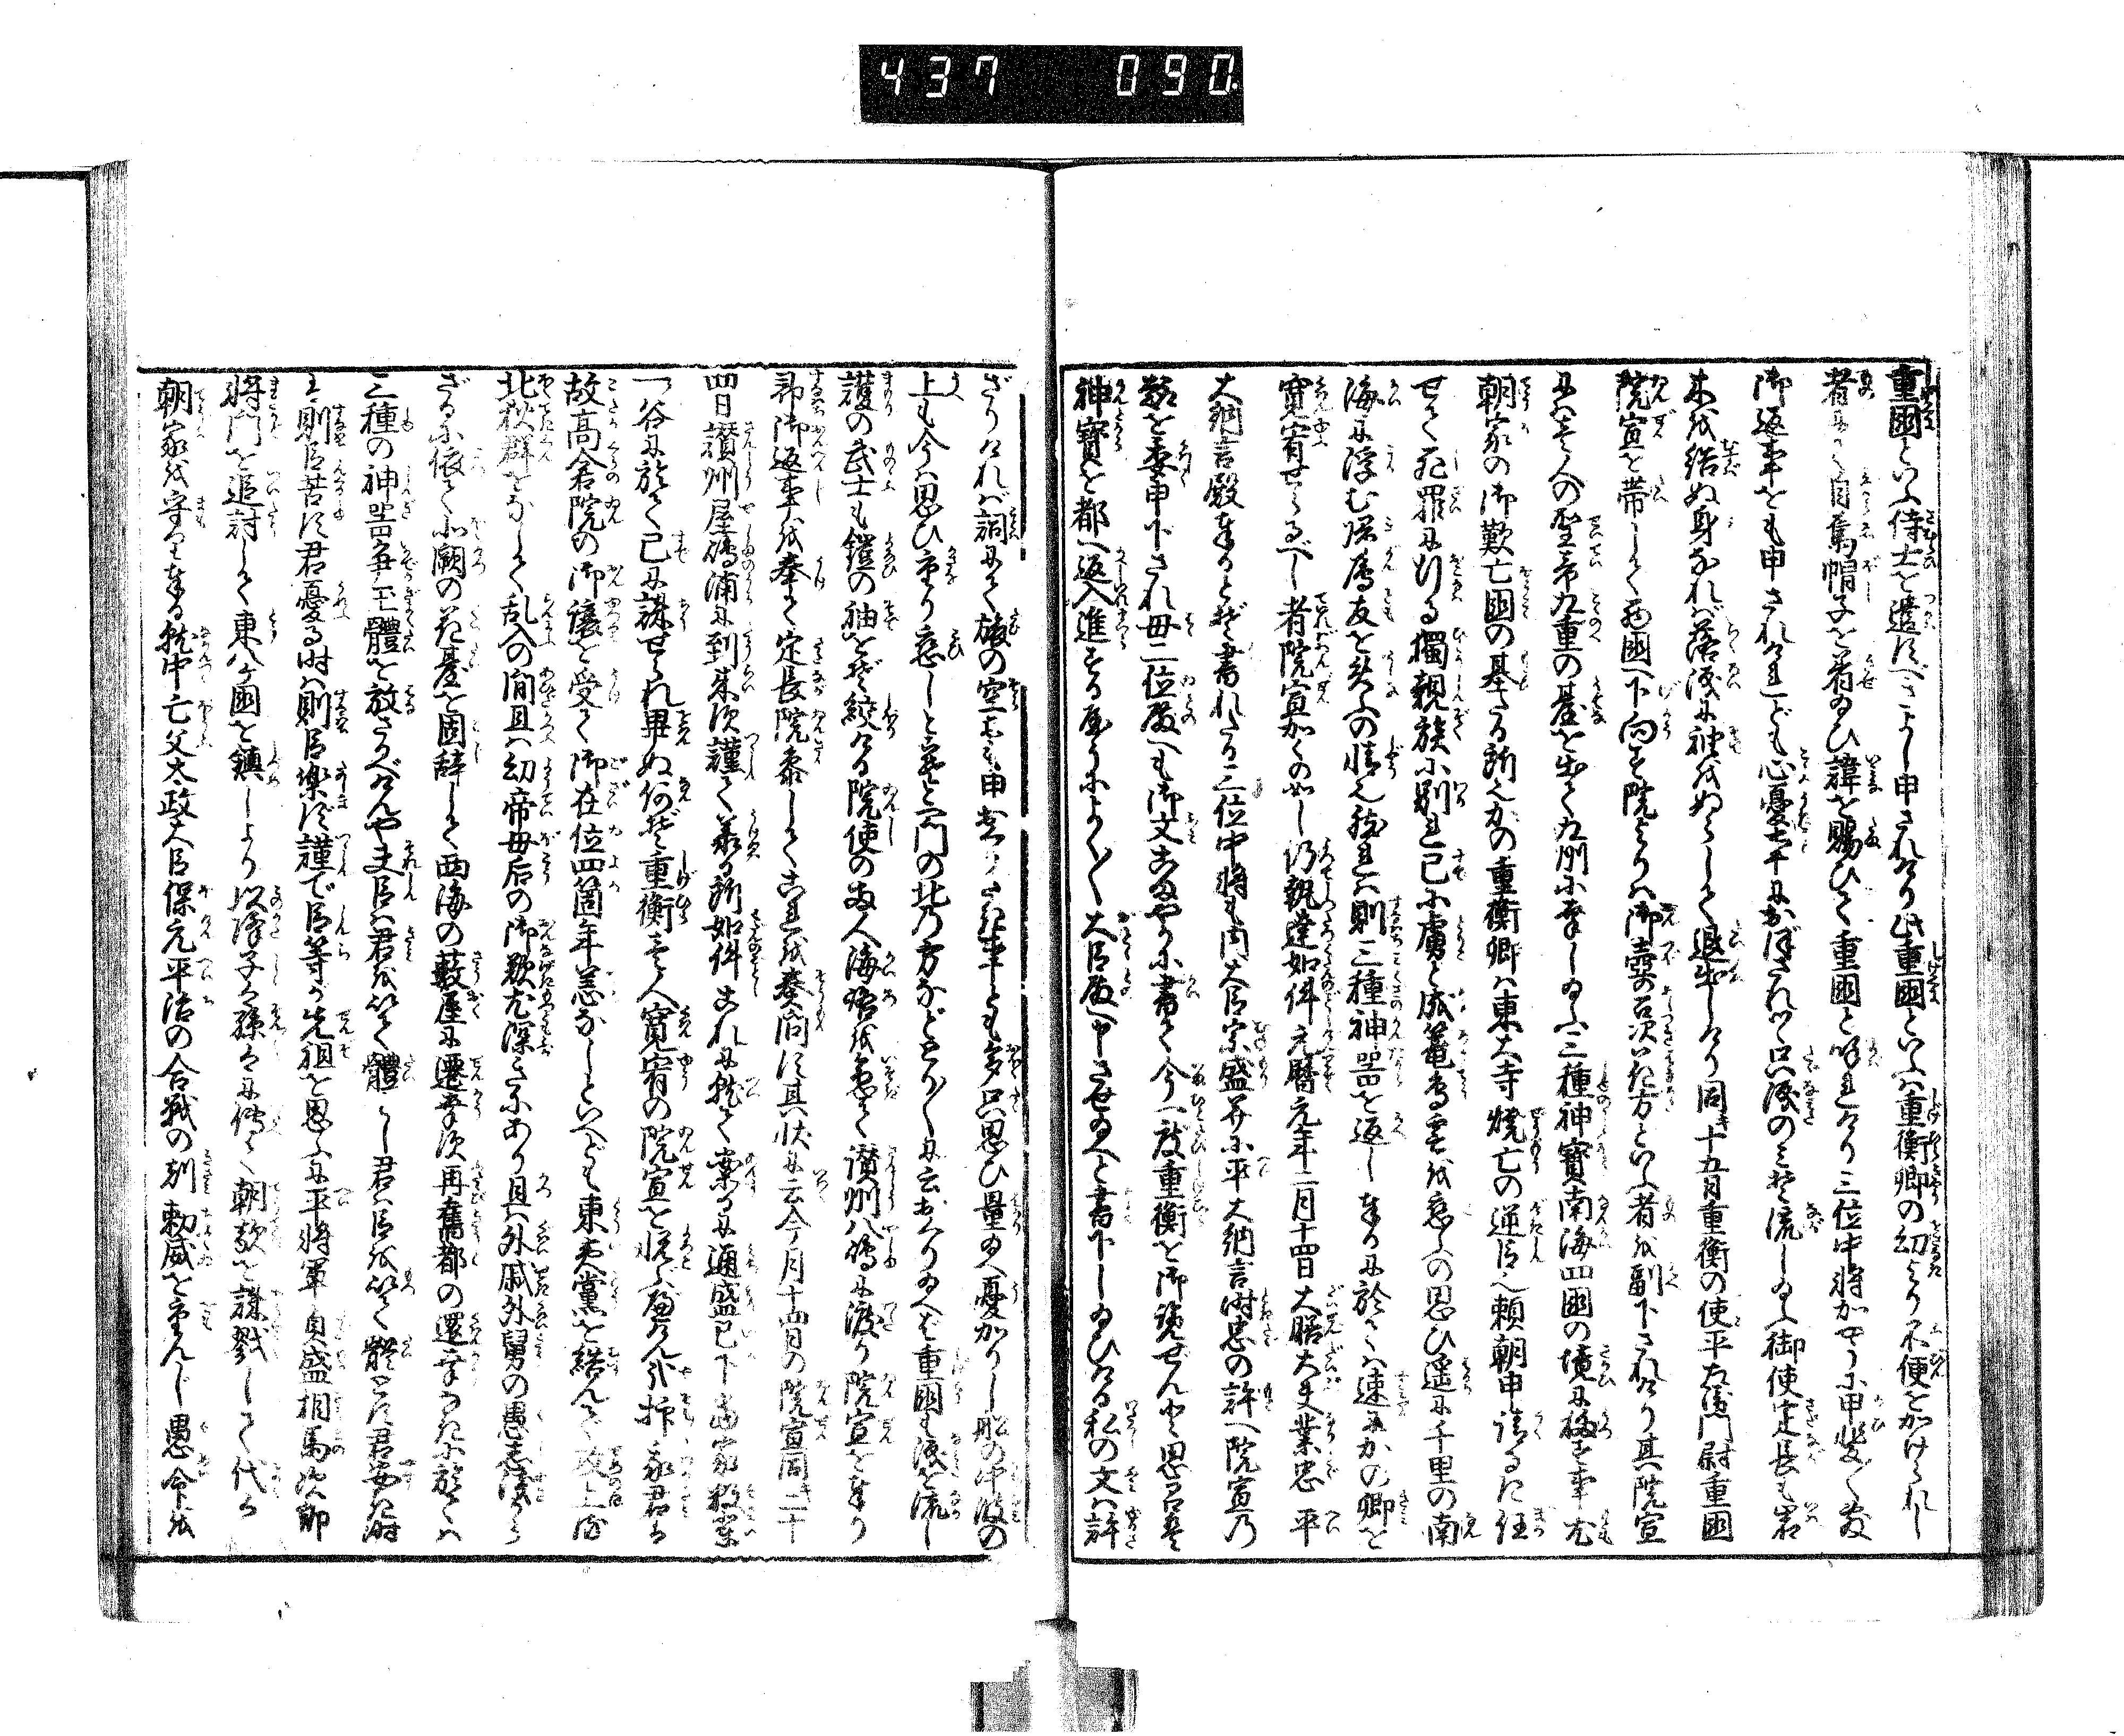 437 090
重國といふ侍士を遣はすべきよし申されけり此重國といふは重衡卿の幼より不便をかけられし
者にて自烏帽子を着給ひ諱を賜ひて重國と呼れけり三位中将かやうに申
御返事をも申されけれども心憂げにおぼされて只涙のみぞ流し給ふ御使定長も岩
木を結ぬ身なれば落涙に袖をぬらして退出しけり同十五日重衡の使平左衛門尉重國
院宣を帯して西國へ下向す院よりは御壺の召次 方といふ者を副下されけり其院宣
には 人の聖帝九重の臺を出て九州に幸し給ふ三種神寶南海四國の境に 事尤
朝家の御歎亡國の基たる所也かの重衡卿は東大寺焼亡の逆臣也頼朝申請るに任
せて死罪に行る 獨親族に別れ已に虜と成籠鳥雲を恋るの思ひ遥に千里の南
海に浮む帰鴈友を失ふの情 則三種神器を返し奉るに於ては速にかの卿を
寛宥せらるべし者院宣かくの如し仍執達如件元暦元年二月十四日大膳大夫業忠平
大納言殿奉るとぞ書れたる三位中将も内大臣宗盛并に平大納言時忠の許へ院宣乃
趣を委申下され母二位殿へも御文こまやかに書て今一度重衡を御覧ぜんと思召は
神寶を都へ返入進する やうによく〳〵大臣殿へ申させ給へと書下し給ひける私の文は許
ざりければ詞にて旅の空にも申 事ども多只思ひ量り給へ憂かりし船の中波の
上も今は思ひ 恋しと 一門の北乃方などより〳〵に云おくり給へば重國も涙を流し
護の武士も鎧の袖をぞ絞ける院使の両人海路を急ぎて讃州八嶋に渡り院宣を奉り
即御返事を奉て定長院参してこれを奏問す其状に云今月十四日の院宣同二十
四日讃州屋嶋浦に到来す謹で承る所如件これに就て案るに通盛已下當家数輩
一谷に於て已に誅せられ畢ぬ何ぞ重衡一人寛宥の院宣を悦ぶ 抑我君は
故高倉院の御譲を受て御在位四箇年恙なしといへども東夷黨を結んで 上洛
北狄群をなして乱入の間且は幼帝母后の御歎尤深きにあり且は外戚外舅の愚志浅から
ざるに依て北闕の花臺を固辞して西海の薮屋に遷幸す再舊都の還幸なきに於ては
三種の神器争玉體を放さるべけんや夫臣は君を以て體 し君は臣を以て體とす君安き時
は則臣苦 君憂る時は則臣楽まず謹で臣等が先祖を思ふに平将軍貞盛相馬次郎
将門を追討して東八ヶ國を鎮しより以降子々孫々に傳て朝敵を誅戮して代々
朝家を守り奉る就中亡父太政大臣保元平治の合戦の刻勅威を し愚命を